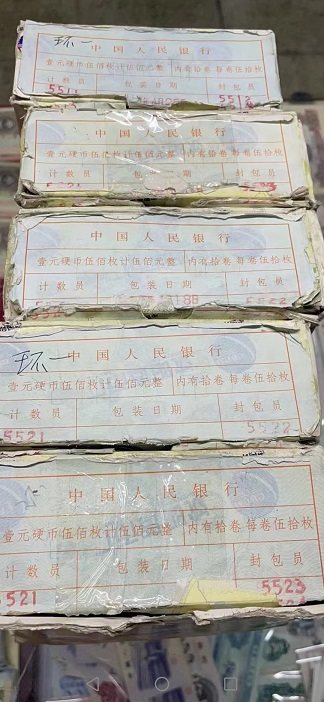 环一
中国人民银行
壹元硬币伍佰枚计伍佰元整 内有拾卷每卷伍拾枚
计数员 包装日期 封包员
5511 5512
中国人民银行
壹元硬币伍佰枚计伍佰元整 内有拾卷每卷伍拾枚
计数员 包 期 封包员
中国人民银行
壹元硬币伍佰枚计伍佰元整 内有拾卷每卷伍拾枚
计数员 包装日期 封包员
环一
中国人民银行
壹元硬币伍佰枚计伍佰元整 内有拾卷每卷伍拾枚
计数员 包装日期 封包员
5521 5522
中国人民银行
壹元硬币伍佰枚计伍佰元整 内有拾卷每卷伍拾枚
计数员 包装日期 封包员
521 5523